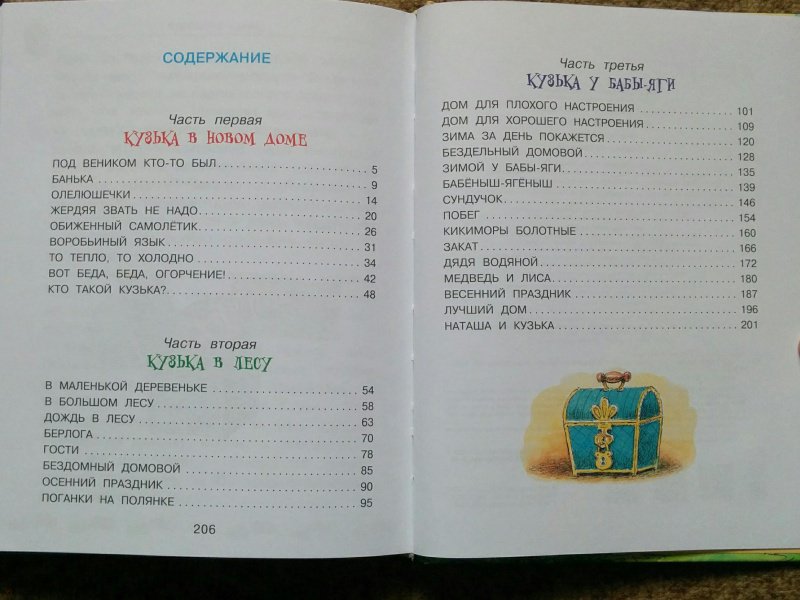 СОДЕРЖАНИЕ
Часть первая
КУЗЬКА В НОВОМ ДОМЕ
ПОД ВЕНИКОМ КТО-ТО БЫЛ 5
БАНЬКА 9
ОЛЕЛЮШЕЧКИ 14
ЖЕРДЯЯ ЗВАТЬ НЕ НАДО 20
ОБИЖЕННЫЙ САМОЛЁТИК 26
ВОРОБЬИНЫЙ ЯЗЫК 31
ТО ТЕПЛО, ТО ХОЛОДНО 34
ВОТ БЕДА, БЕДА, ОГОРЧЕНИЕ! 42
КТО ТАКОЙ КУЗЬКА? 48
Часть вторая
КУЗЬКА В ЛЕСУ
В МАЛЕНЬКОЙ ДЕРЕВЕНЬКЕ 54
В БОЛЬШОМ ЛЕСУ 58
ДОЖДЬ В ЛЕСУ 63
БЕРЛОГА 70
ГОСТИ 78
БЕЗДОМНЫЙ ДОМОВОЙ 85
ОСЕННИЙ ПРАЗДНИК 90
ПОГАНКИ НА ПОЛЯНКЕ 95
206
Часть третья
КУЗЬКА У БАБЫ-ЯГИ
ДОМ ДЛЯ ПЛОХОГО НАСТРОЕНИЯ 101
ДОМ ДЛЯ ХОРОШЕГО НАСТРОЕНИЯ 109
ЗИМА ЗА ДЕНЬ ПОКАЖЕТСЯ 120
БЕЗДЕЛЬНЫЙ ДОМОВОЙ 128
ЗИМОЙ У БАБЫ-ЯГИ 135
БАБЁНЫШ-ЯГЁНЫШ 139
СУНДУЧОК 146
ПОБЕГ 154
КИКИМОРЫ БОЛОТНЫЕ 160
ЗАКАТ 166
ДЯДЯ ВОДЯНОЙ 172
МЕДВЕДЬ И ЛИСА 180
ВЕСЕННИЙ ПРАЗДНИК 187
ЛУЧШИЙ ДОМ 196
НАТАША И КУЗЬКА 201